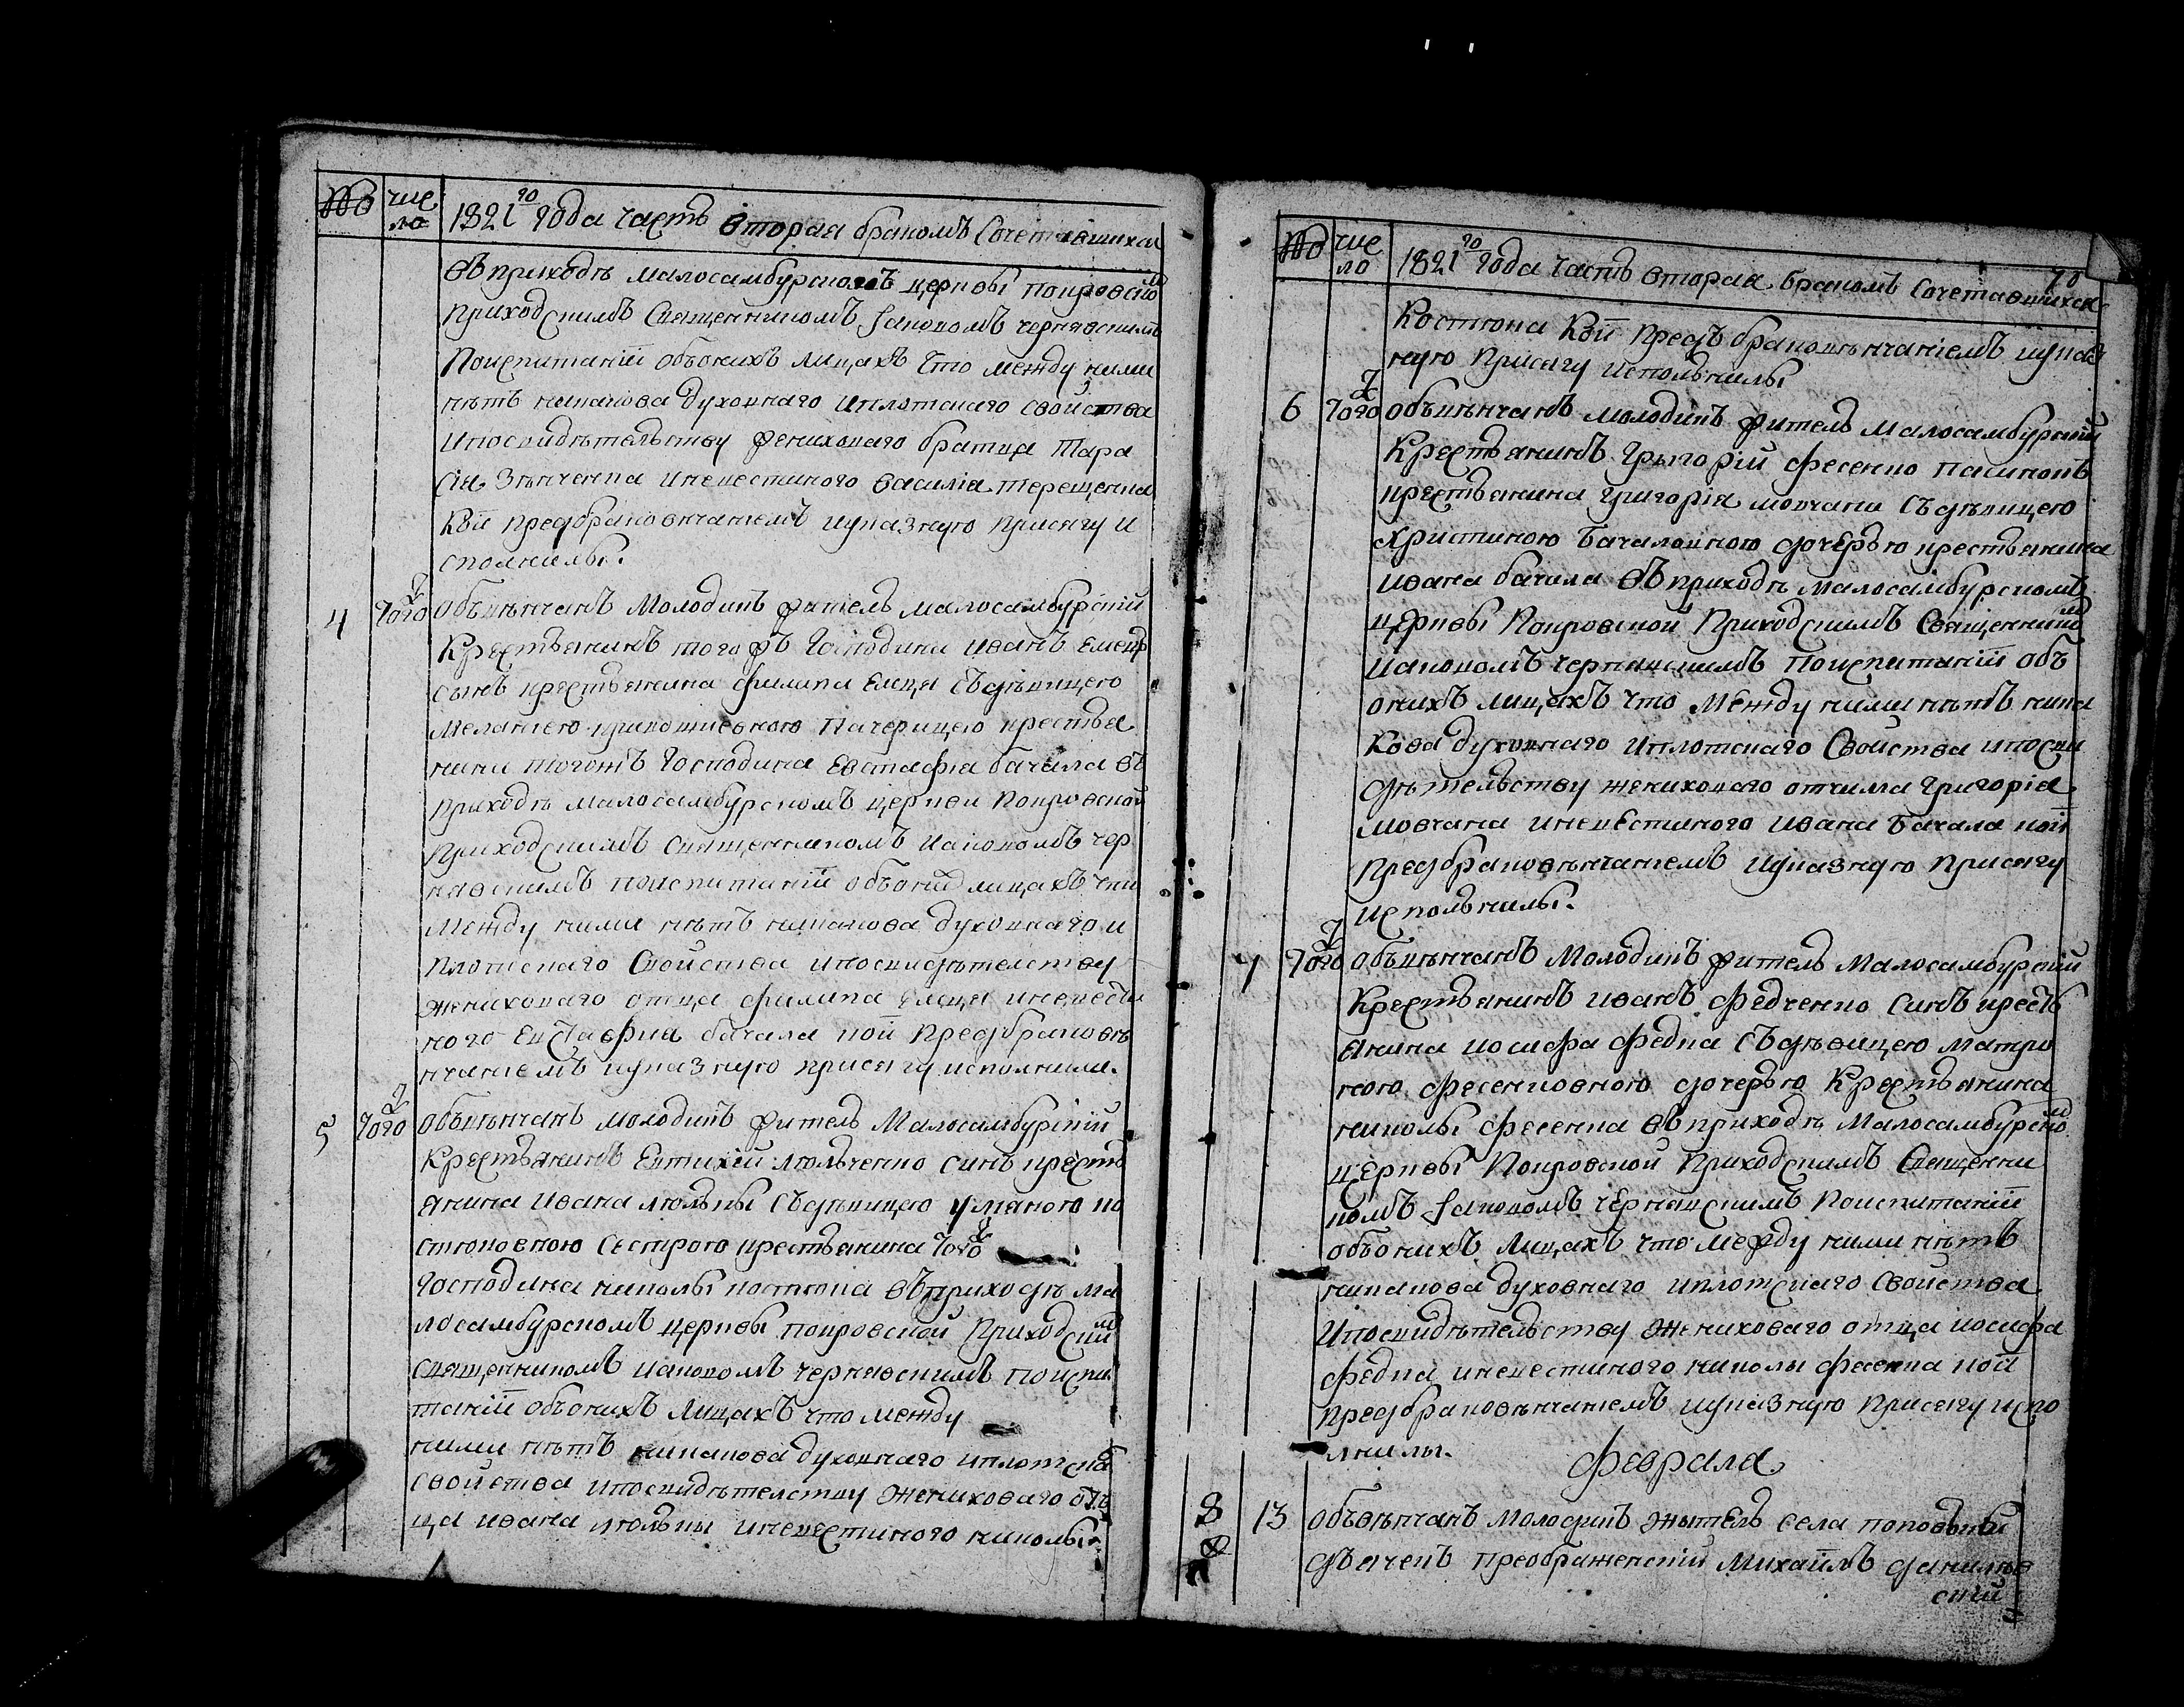 № чис
ло
1821го года часть вторая бракомъ сочетавшихся
въ приходѣ малосамбурскомъ церквы покровско
й
приходскимъ священникомъ Іаковомъ чернявскимъ
поиспитаніи обьонихъ лицахъ что между ними
нѣтъ никакова духовнаго иплотскаго свойства
ипосвидѣтельству жениховаго братца Тара
сія Зѣнченка иневестиного василія терещенка
кои предбраковѣнчаніемъ иуказную присягу и
сполнилы.
4 того ж обьвѣнчанъ молодикъ житель малосамбурскій
крестьянинъ того жъ господина иванъ емецъ
сынъ крестьянина филипа емця съдѣвицею
меланіею пачерицею крестья
нина тогожъ господина евстафія бачала въ
приходѣ малосамбурскомъ церкви покровской
приходскимъ священникомъ иаковомъ чер
нявскимъ поиспитаніи обьоних лицахъ что
между ними нѣтъ никакова духовнаго и
плотскаго свойства ипосвидѣтелству
жениховаго отца филипа емця иневести
ного евстафия бачала кои предбраковѣ
нчаніемъ иуказную присягу исполнили.
5 того ж обьвѣнчанъ молодикъ житель малосамбурскій
крестьянинъ евтихій люльченко синъ кресть
янина ивана люльки съдѣвицею уляною ко
стюковною сестрою крестьянина того ж
господина николы костюка въприходѣ ма
лосамбурскомъ церквы покровской приходски
мъ
священникомъ иаковомъ чернявскимъ поиспи
таніи обьонихъ лицахъ что между
ними нѣтъ никакова духовнаго иплотска
свойства ипосвидѣтелству жениховаго от
ца ивана люльки иневестиного николы
№ чис
ло
1821го года часть вторая бракомъ сочетавшихся
70
костюка кои предъ браковѣнчаніемъ иуказ
ную присягу исполнилы
6 того ж обьвѣнчанъ молодикъ житель малосамбурскій
крестьянинъ григорій фесенко пасинокъ
крестьянина григорія мовчана съдѣвицею
христиною бачаловною дочерью крестьянина
ивана бачала въ приходѣ малосамбурскомъ
церквы покровской приходскимъ священнико
мъ
иаковомъ чернявскимъ поиспитаніи объ
онихъ лицахъ что между ними нѣтъ ника
кова духовнаго иплотскаго свойства ипосви
дѣтельству жениховаго отчима григорія
мовчана иневестиного ивана бачала кои
предбраковѣнчаніемъ иуказную присягу
исполнилы.
7 того ж обьвѣнчанъ молодикъ житель малосамбурскій
крестьянинъ иванъ федченко синъ кресть
янина иосифа федка съдѣвицею матро
ною фесенковною дочерью крестьянина
николы фесенка въприходѣ малосамбурско
мъ
церквы покровской приходскимъ священни
комъ Іаковомъ чернявскимъ поиспитаніи
обьонихъ лицахъ что между ними нѣтъ
никакова духовнаго иплотскаго свойства
ипосвидѣтельству жениховаго отца иосифа
федка иневестиного николы фесенка кои
предбраковѣнчаніемъ иуказную присягу испо
лнилы.
февраля
8 13 обьвѣнчанъ молодикъ жытель села поповъки
дьячекъ преображенскій михаилъ данилев
скій